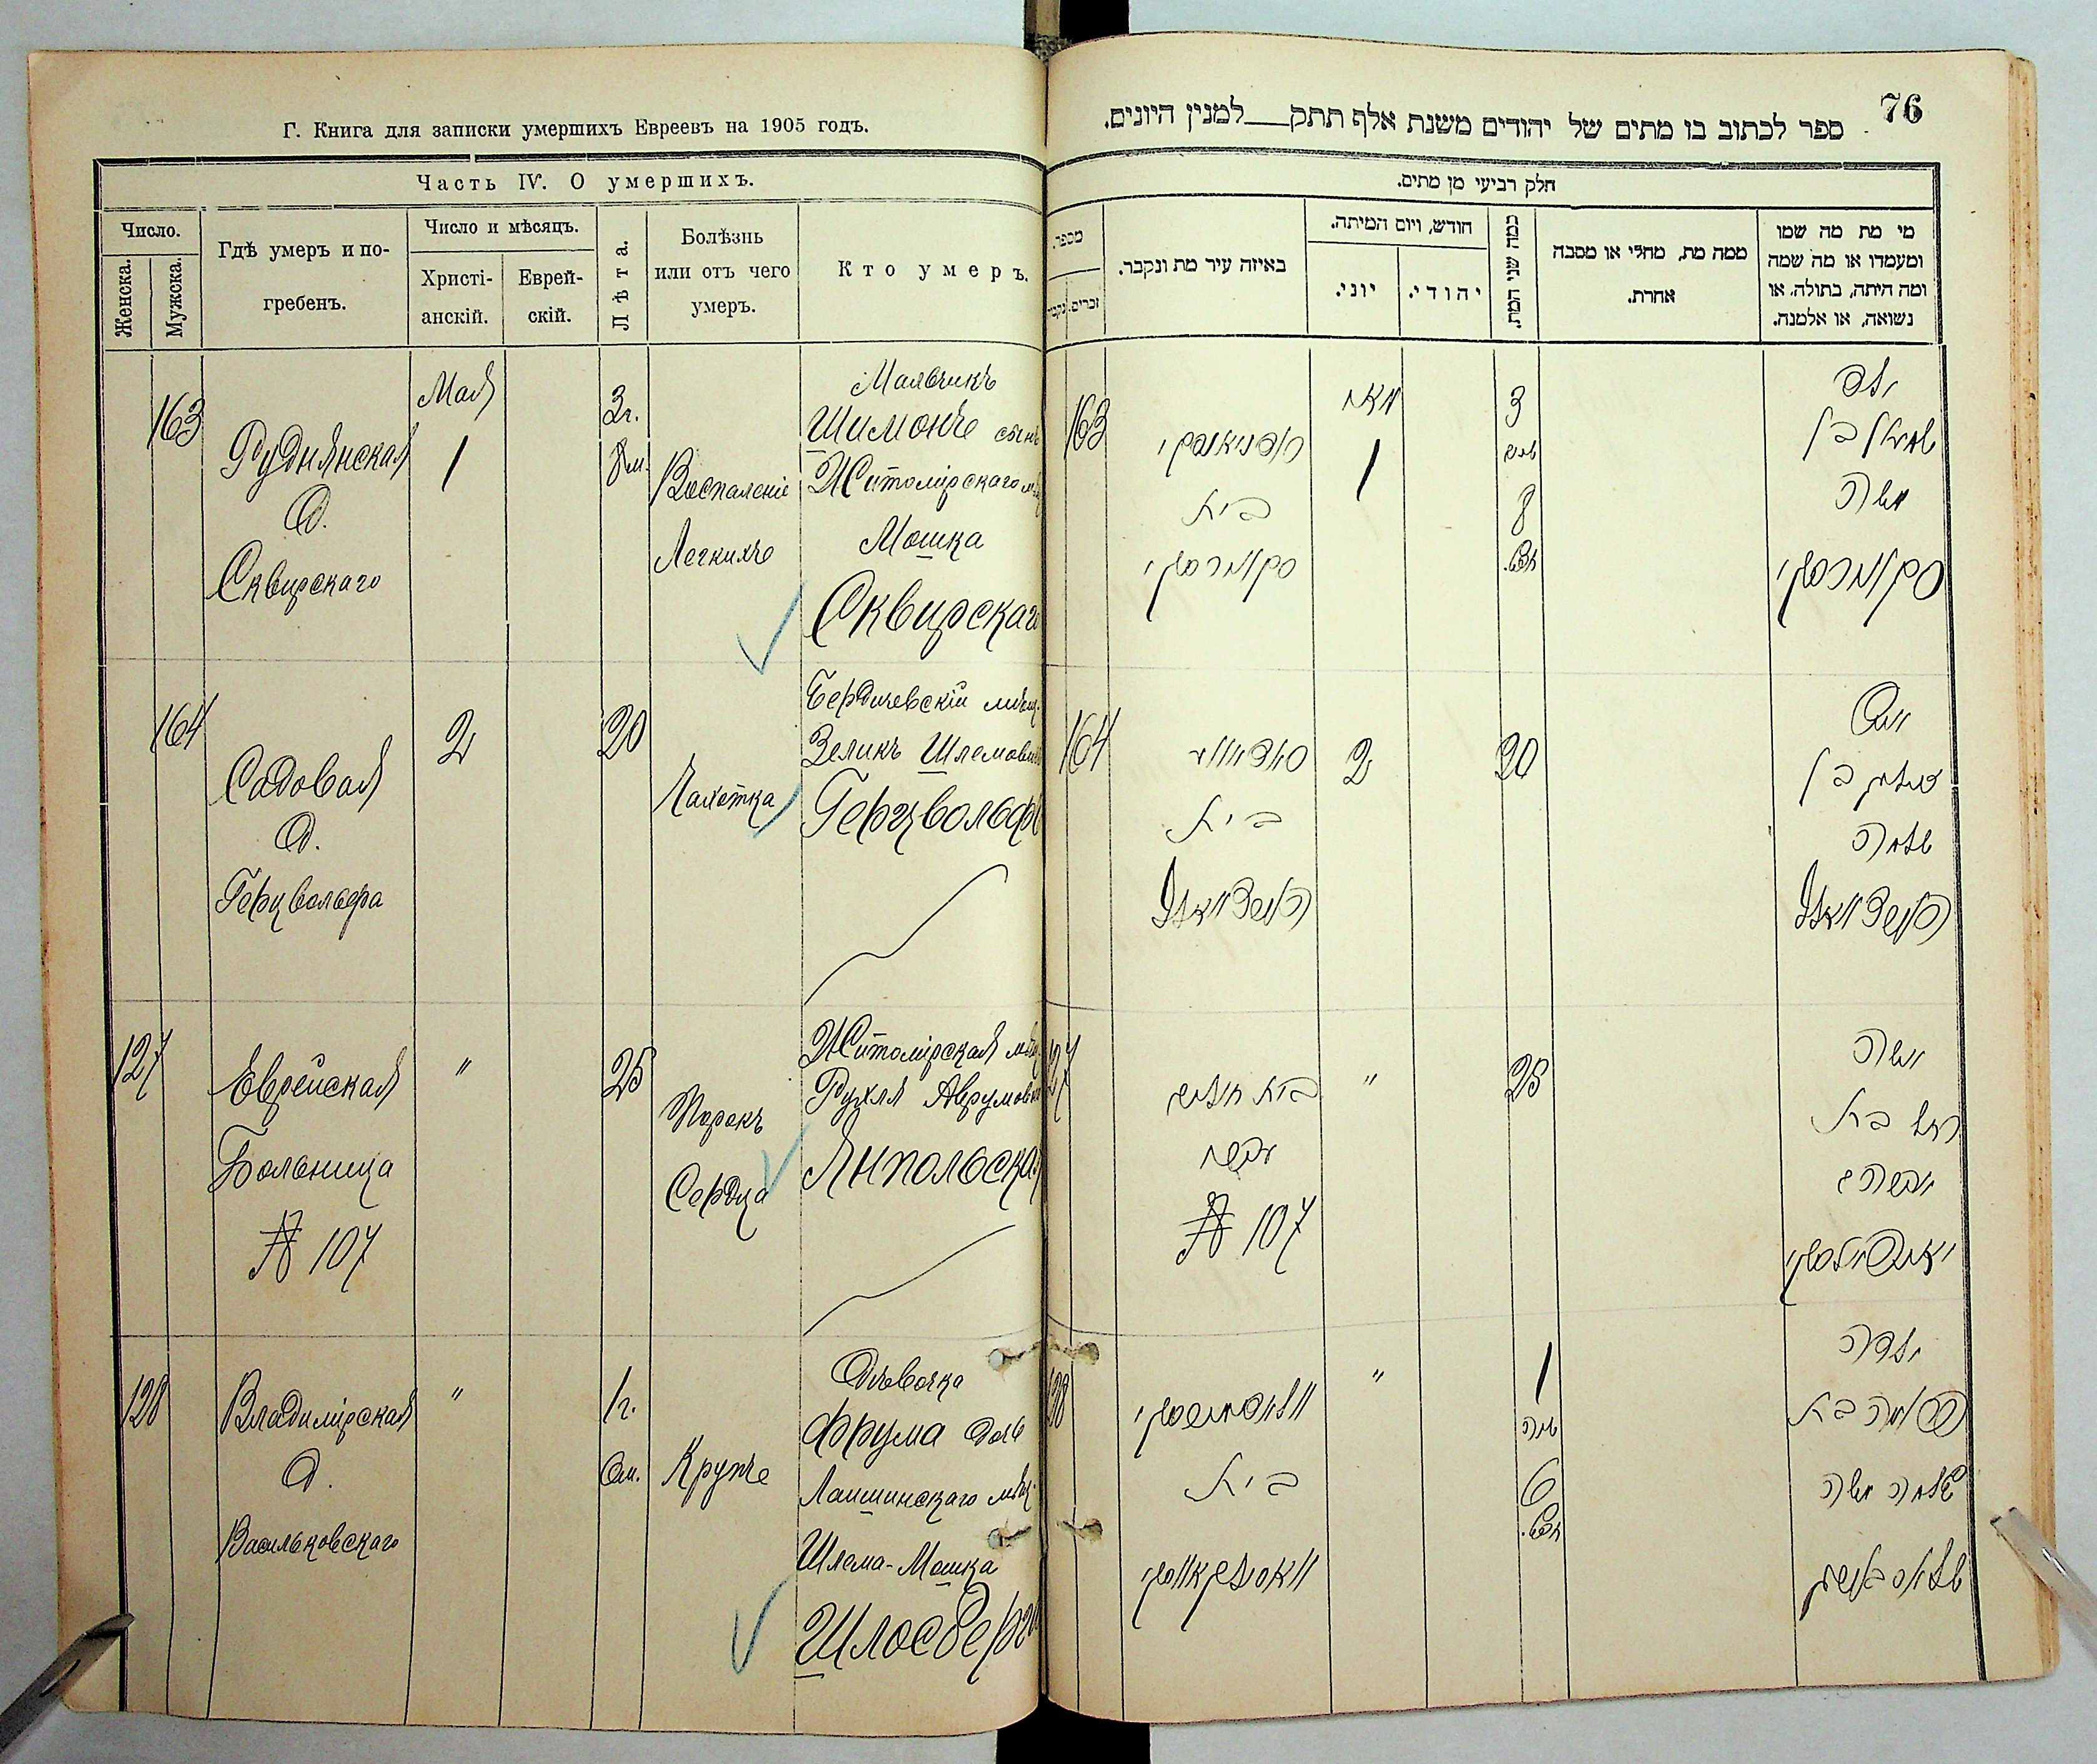 Г. Книга для записки умершихъ Евреевъ на 1905 годъ.
Часть IV. О умершихъ.
Число.
Женска.
Мужска.
Гдѣ умеръ и по-
гребенъ.
Число и мѣсяцъ.
Христі-
анскій.
Еврей-
скій.
Лѣта.
Болѣзнь
или отъ чего
умеръ.
Кто умеръ.
163
Руднянская
д.
Сквирскаго
Мая
1
3г.
8м.
Воспаленіе
Легкихъ
Мальчикъ
Шимонъ сынъ
Житомірскаго мѣщ
Мошка
Сквирскаго
164
Садовая
д.
Герцвольфа
2
20
Чахотка
Бердичевскій мѣщ.
Зеликъ Шлемович
Герцвольфъ
127
Еврейская
Больница
№ 107
"
25
Порокъ
Сердца
Житомірская мѣщ.
Рухля Аврумовна
Янпольская
128
Владимірская
д.
Васильковскаго
"
1г.
6м.
Крупъ
Дѣвочка
Фрума дочь
мѣщ.
Шлема-Мошка
Шлосберга
76
ספר לכתוב בו מתים של יהודים משנת אלף תתק למנין היונים.
חלק רביעי מן מתים.
מספר.
זכרים.
נקבו
באיזה עיר מת ונקבר.
חודש, ויום המיתה.
יוני.
יהודי.
כמה שני המת.
ממה מת, מחלי או מסבה
אחרת.
מי מת מה שמו
ומעמדו או מה שמה
ומה היתה, בתולה, או
נשואה, או אלמנה.
163
בית
סקווירסקי
מאי
1
3
שנים
8
חדש.
ילד
שמעון בן
משה
סקווירסקי
164
בית
הערצוואלף
2
20
שלמה
הערצוואלף
127
בית חולים
№ 107
"
25
רחל בת
יאנפאלסקי
128
בית
"
1
שנה
6
חדש.
ילדה
פרומה בת
שלמה משה
שלאסבערג